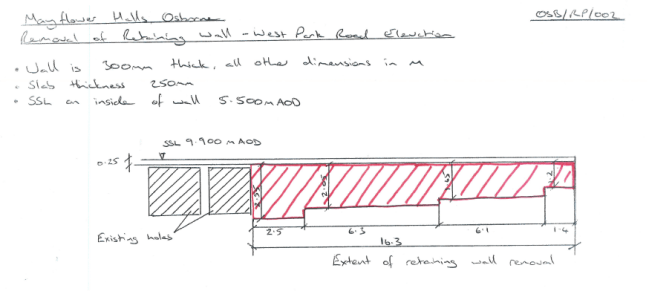 Mayflower Halls, Osborne
OSB/RP/002
Removal of Retaining Wall - West Park Road Elevation
• Wall is 300mm thick, all other dimensions in m
• Slab thickness 250mm
• SSL on inside of wall 5.500mAOD
SSL 9.900mAOD
0.25
Existing holes
2.5
6.3
6.1
1.4
16.3
Extent of retaining wall removal